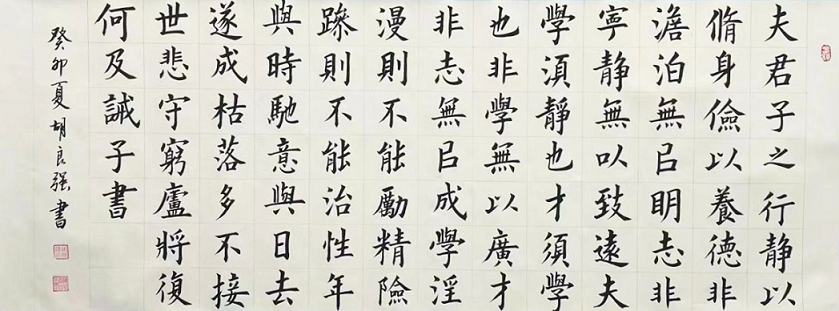 夫君子之行静以
脩身儉以養德非
澹泊無㠯眀志非
寧静無㕥致遠夫
學湏靜也才須學
也非學無以廣才
非志無㠯成學淫
漫則不能勵精險
躁則不能治性年
與時馳意與日去
遂成枯落多不接
世悲守窮廬將復
何及誡子書
癸卯夏胡良强書